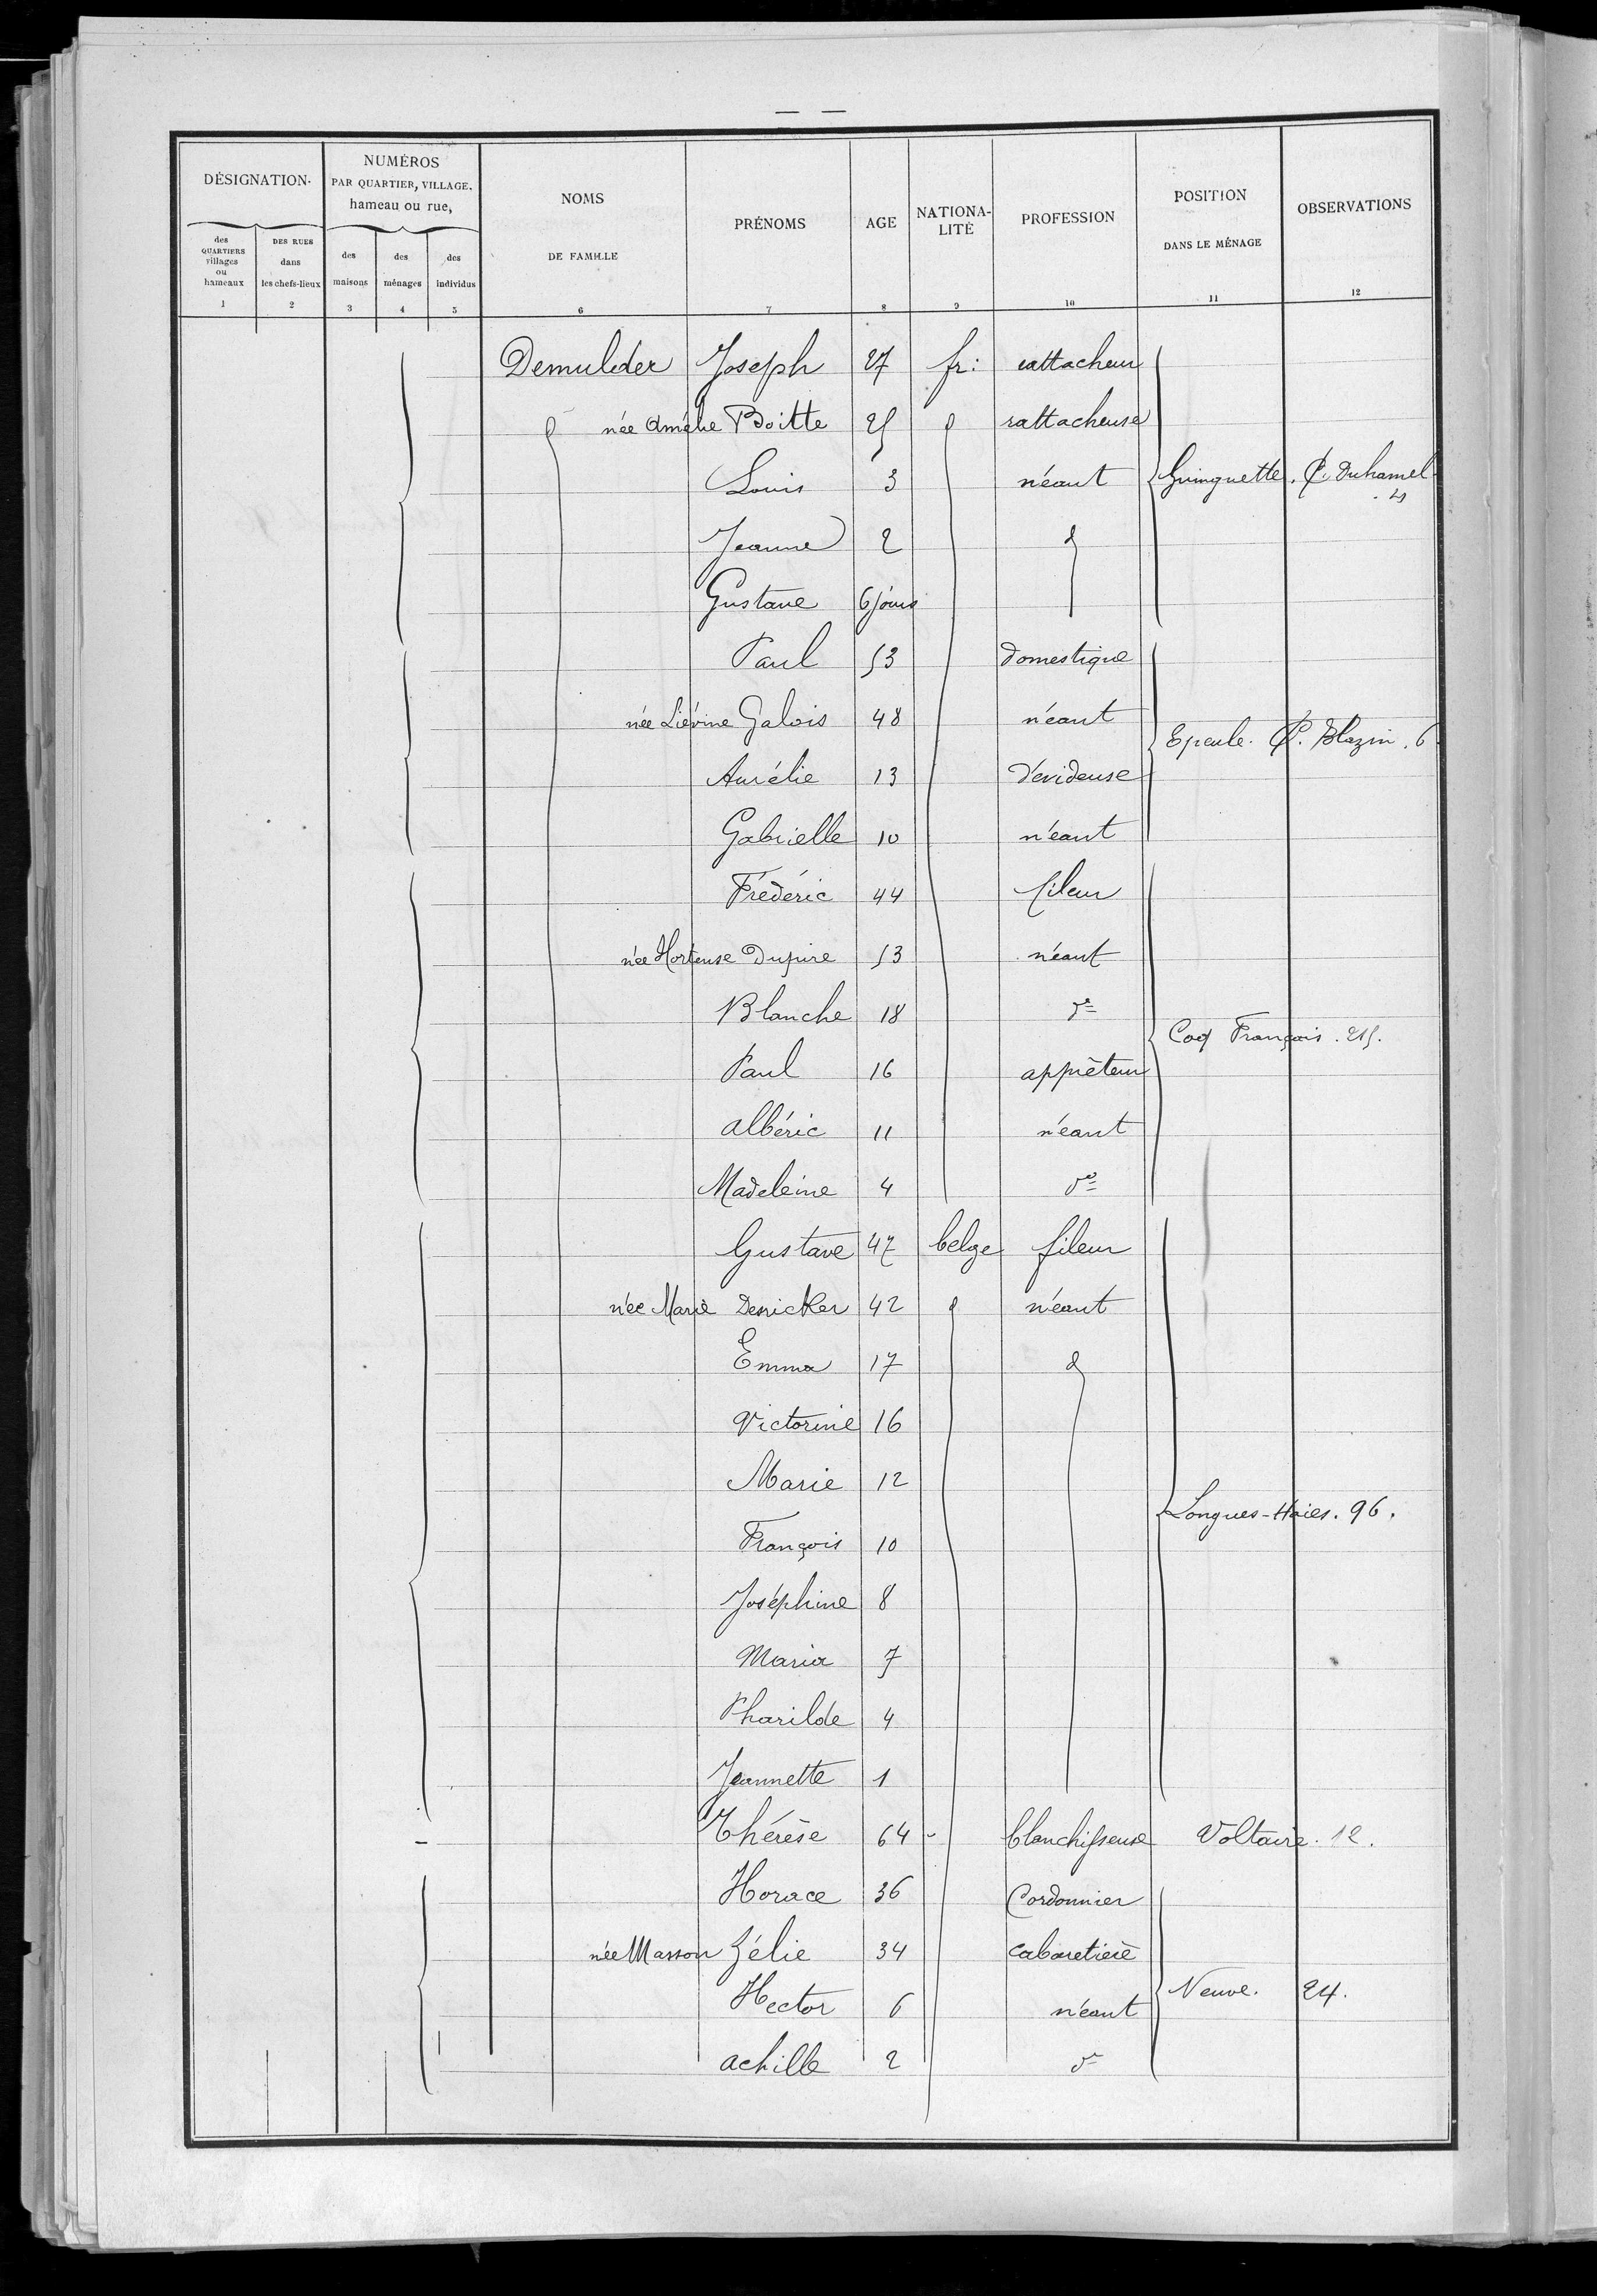 DÉSIGNATION. NUMÉROS PAR QUARTIER, VILLAGE, hameau ou rue, NOMS DE FAMILLE PRÉNOMS AGE NATIONA-LITÉ PROFESSION POSITION DANS LE MÉNAGE OBSERVATIONS
des QUARTIERS villages ou hameaux DES RUES dans les chefs-lieux des maisons des ménages des individus
1 2 3 4 5 6 7 8 9 10 11 12
Demulder Joseph 27 fr: rattacheur
d née Amélie Boitte 25 d rattacheuse
Louis 3 néant Guinguette. C. Duhamel
Jeanne 2 d
Gustave 6 jours
Paul 53 domestique
née Liévine Galois 48 néant
Epeule. C. Blazin. 6
Aurélie 13 dévideuse
Gabrielle 10 néant
Frédéric 44 fileur
née Hortense Dupire 53 néant
Blanche 18 de
Coq Français. 215.
Paul 16 apprêteur
Albéric 11 néant
Madeleine 4 de
Gustave 47 belge fileur
née Marie Desricker 42 d néant
Emma 17 d
Victorine 16
Marie 12
Longues-Haies. 96.
François 10
Joséphine 8
Maria 7
Pharilde 4
Jeannette 1
- Thérèse 64 - blanchisseuse Voltaire. 12.
Horace 36 Cordonnier
née Masson Zélie 34 cabaretière
Hector 6 néant Neuve. 24.
achille 2 de